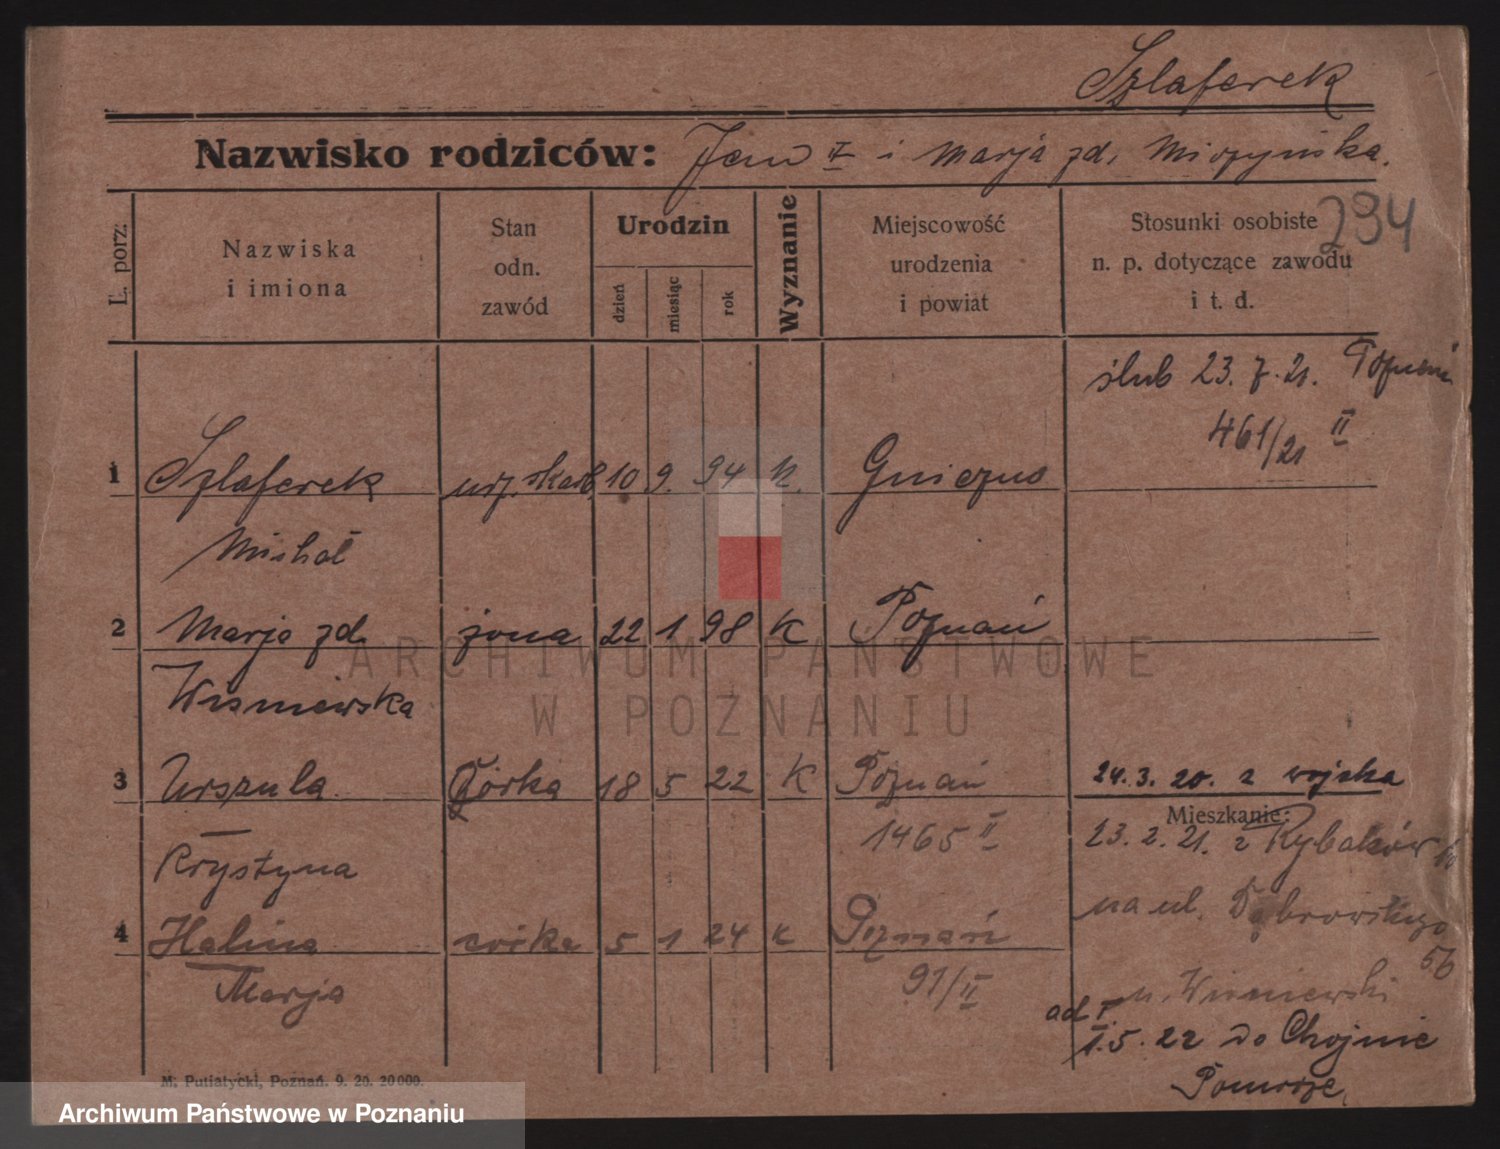 Szlaferek
Nazwisko rodziców: Jan i Marja zd. Mirzyńska.
294
L. porz:
Nazwiska
i imiona
Stan
odn.
zawód
Urodzin
dzień
miesiąc
rok
Wyznanie
Miejscowość
urodzenia
i powiat
Stosunki osobiste
n. p. dotyczące zawodu
i t. d.
ślub 23. 7. 21. Poznań
461/21 II
1 Szlaferek urz. skarb. 10 9. 94 k. Gniezno
Michał
2 Marja zd. żona 22 1 98 K Poznań
Wiśniewska
3 Urszula córka 18 5 22 K Poznań 24. 3. 20. z wojska
Mieszkanie:
1465 II 23. 2. 21. z Rybaków
Krystyna
na ul. Dąbrowskiego
56
4 Halina córka 5 1 24 k Poznań
Marja 91/II u. Wiśniewski
ad I
1. 5. 22 do Chojnic
Pomorze
M. Putiatycki, Poznań. 9. 20. 20 000.
ARCHIWUM PAŃSTWOWE
W POZNANIU
Archiwum Państwowe w Poznaniu